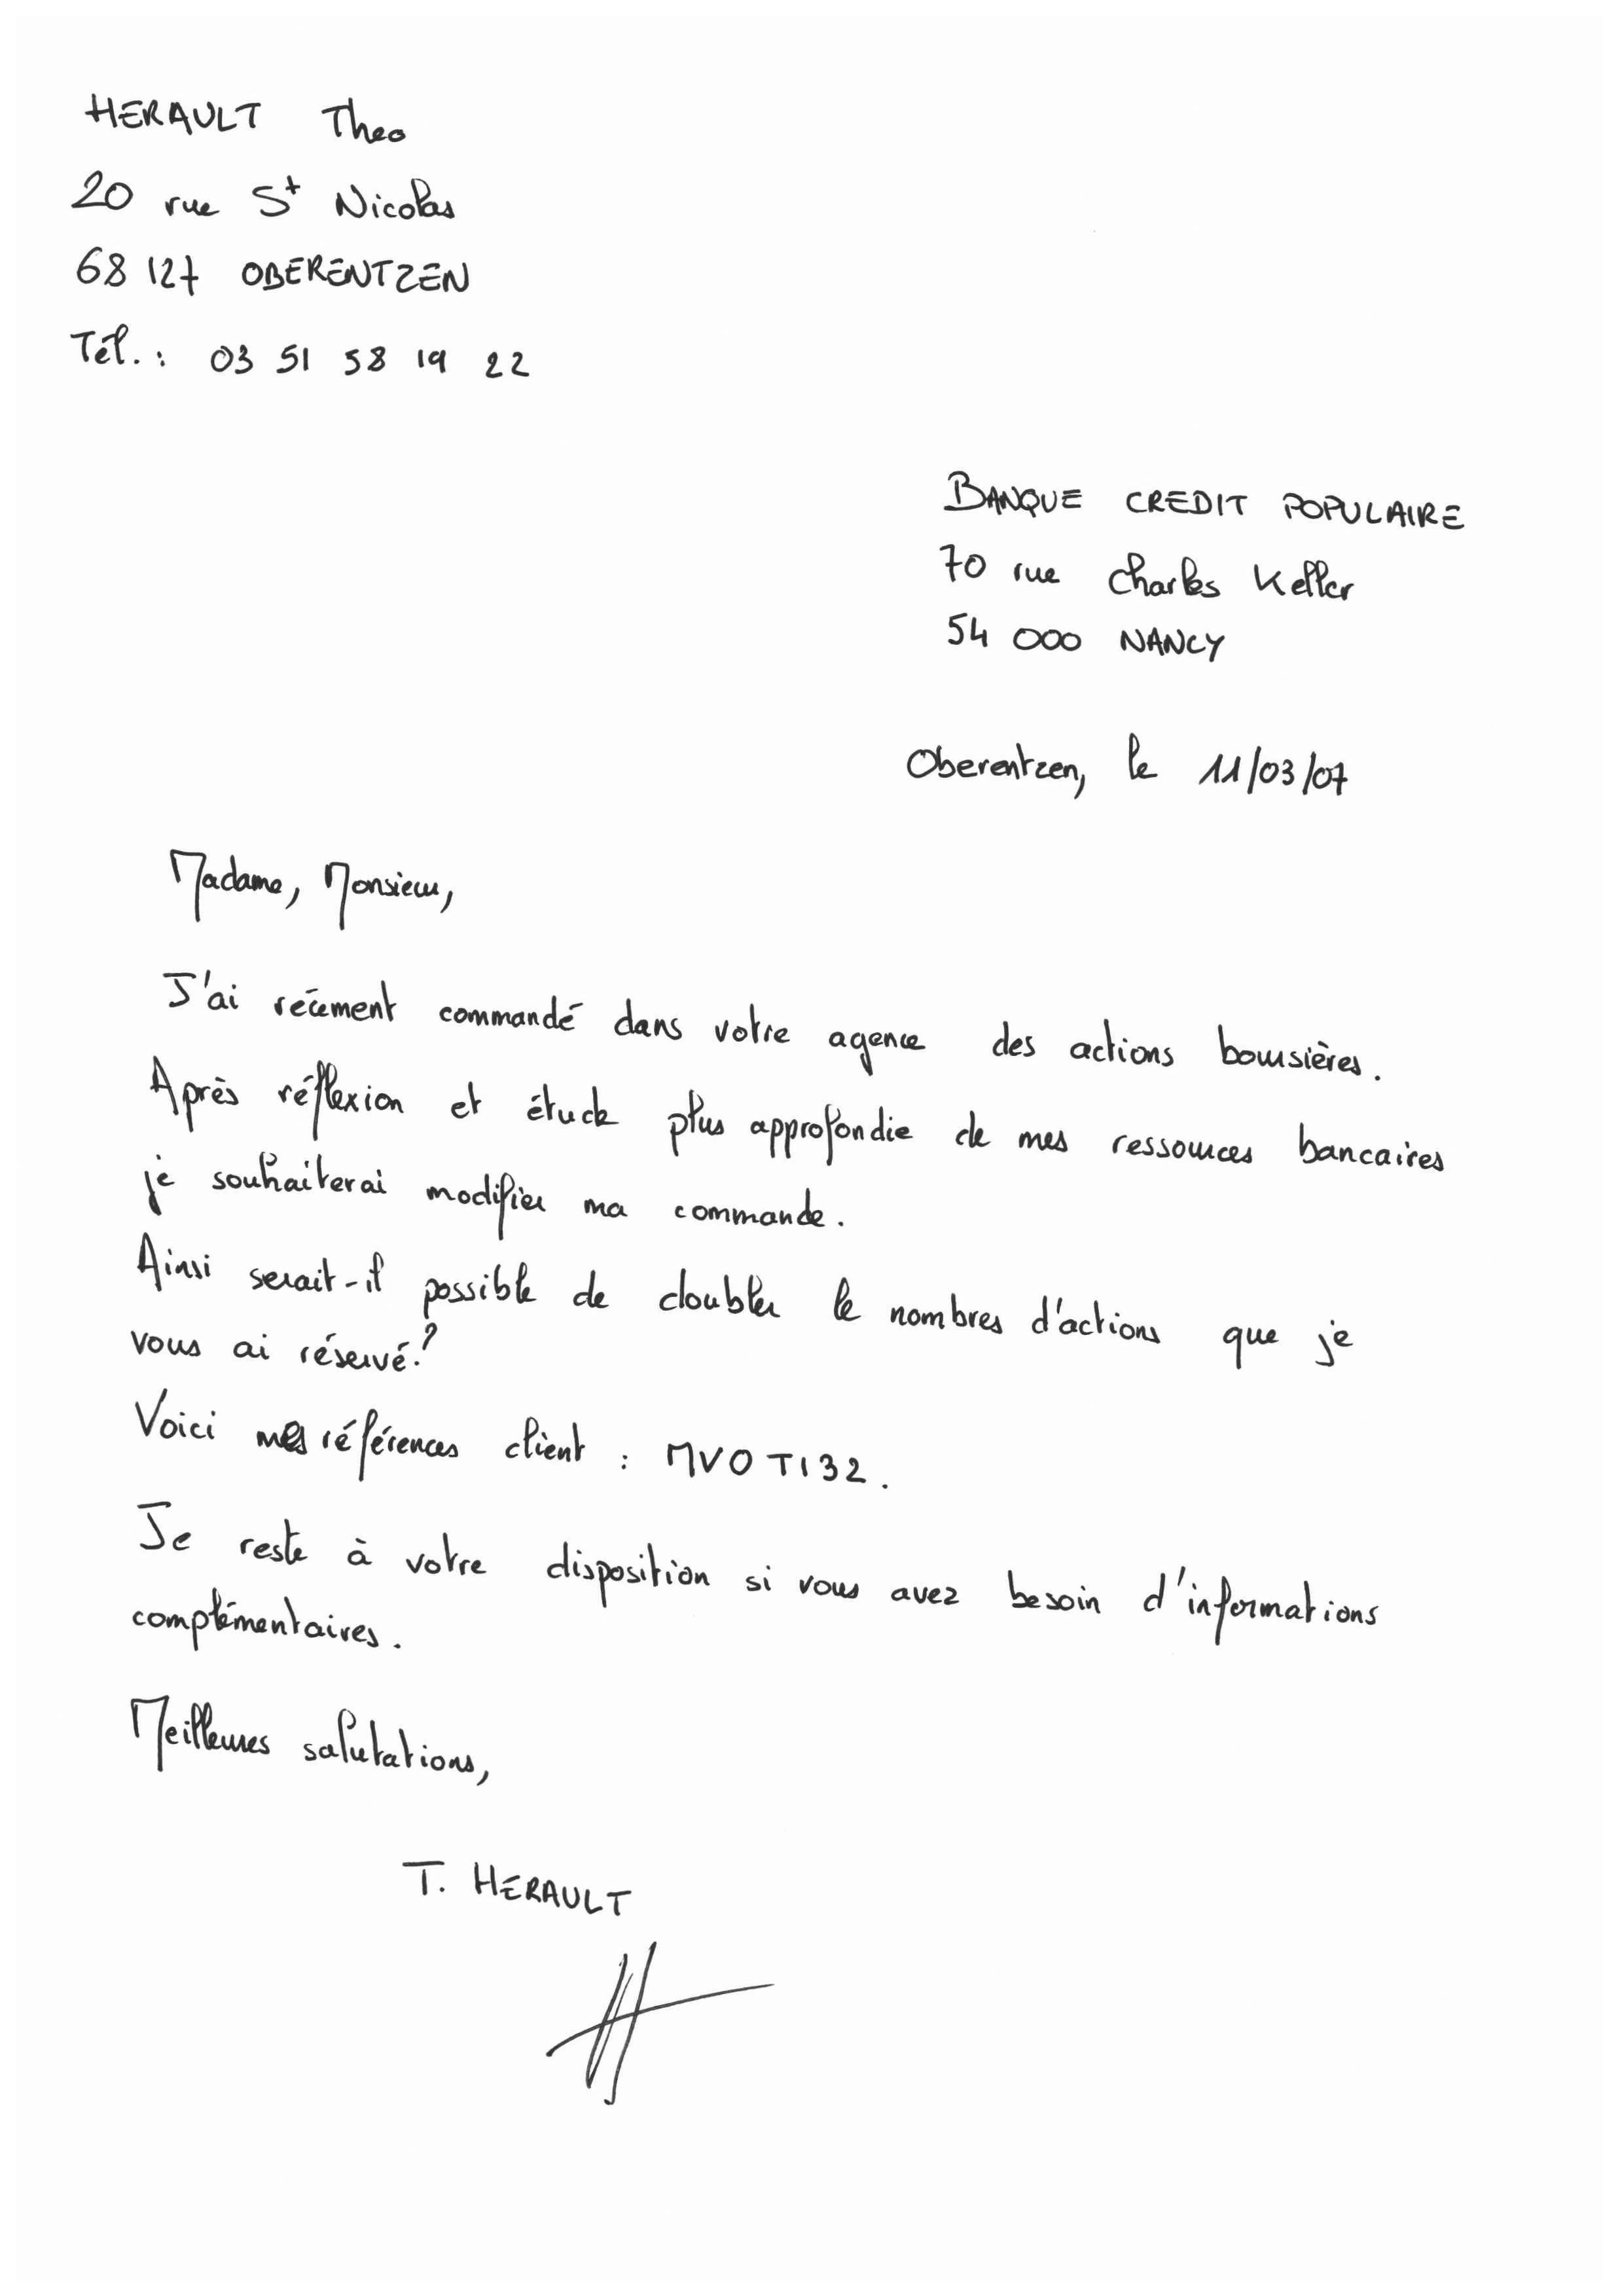 HERAULT Theo
20 rue St Nicolas
68 127 OBERENTZEN
Tél. : 03 51 58 19 22
BANQUE CREDIT POPULAIRE
70 rue Charles Keller
54 000 NANCY
Oberentzen, le 11/03/07
Madame, Monsieur,
J'ai récement commandé dans votre agence des actions boursières.
Après réflexion et étude plus approfondie de mes ressources bancaires
je souhaiterai modifier ma commande.
Ainsi serait-il possible de doubler le nombres d'actions que je
vous ai réservé?
Voici mes références client : MVOTI32.
Je reste à votre disposition si vous avez besoin d'informations
complémentaires.
Meilleures salutations,
T. HERAULT